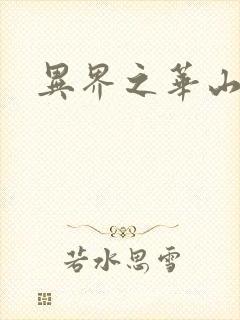 異界之華山
若水思雪